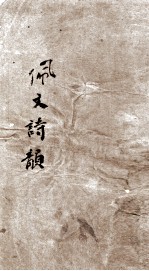 佩文詩韻